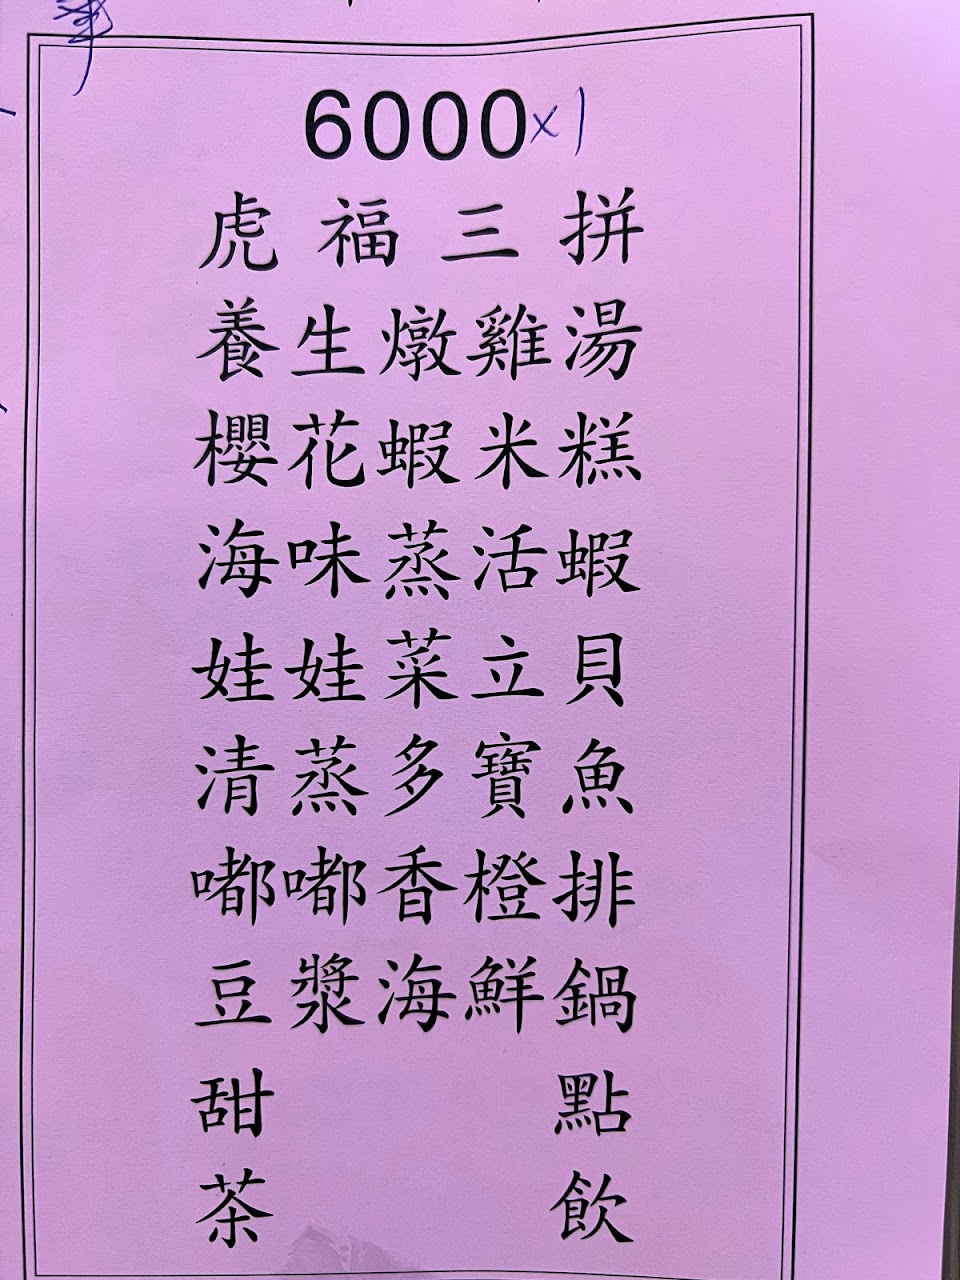 6000×1
虎福三拼
養生燉雞湯
櫻花蝦米糕
海味蒸活蝦
娃娃菜立貝
清蒸多寶魚
嘟嘟香橙排
豆漿海鮮鍋
甜點
茶飲